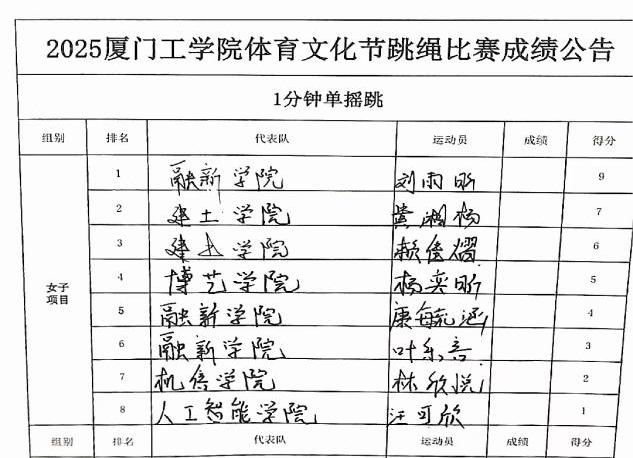 2025厦门工学院体育文化节跳绳比赛成绩公告
1分钟单摇跳
组别 排名 代表队 运动员 成绩 得分
女子项目
1 融新学院 刘雨昕 9
2 建土学院 黄湘杨 7
3 建土学院 赖佳熠 6
4 博艺学院 杨奕昕 5
5 融新学院 康毓涵 4
6 融新学院 叶乐言 3
7 机信学院 林欣悦 2
8 人工智能学院 汪可欣 1
组别 排名 代表队 运动员 成绩 得分